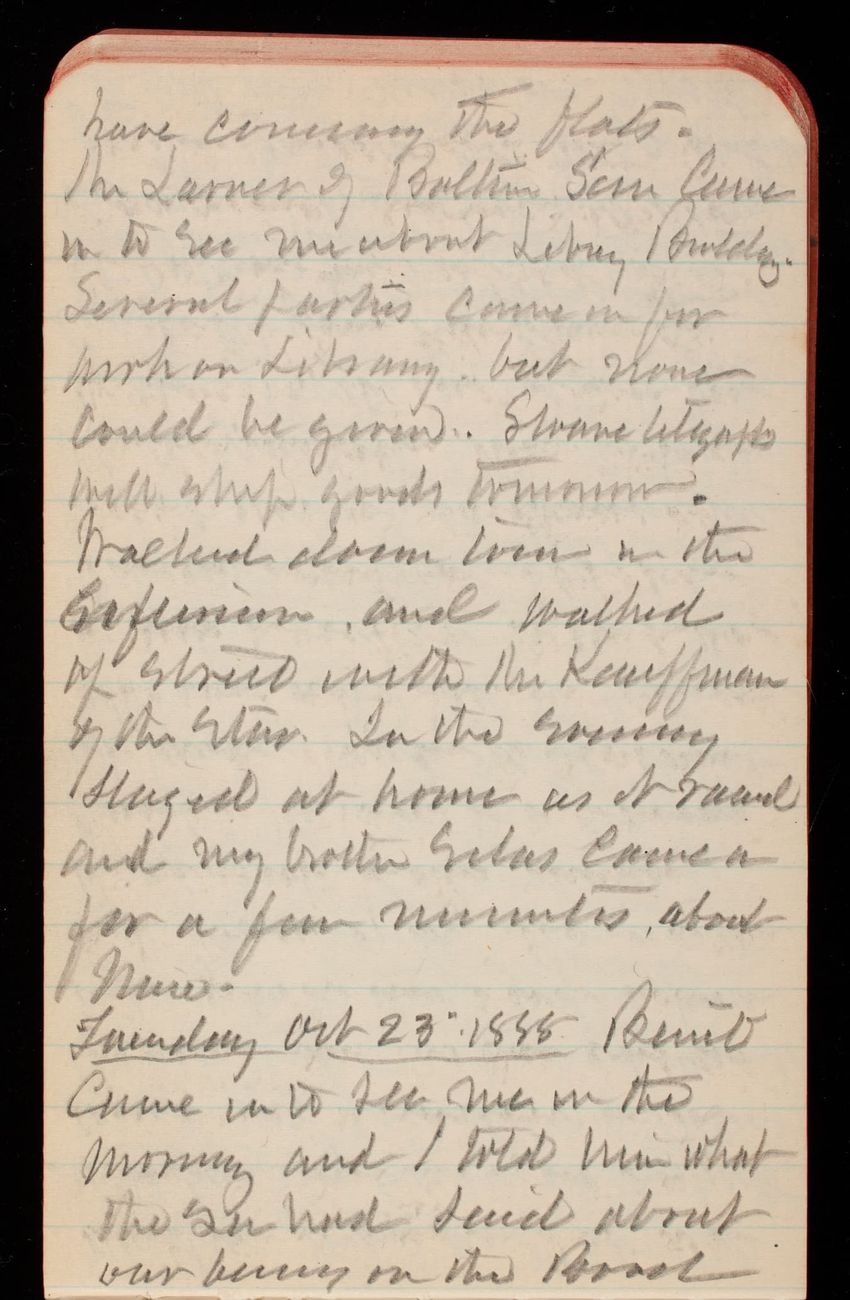 have coming the flats.
Mr Larner of Baltim Sam Came
in to see me about Library Building.
Several parties came in for
work on Library. but none
could be given. Sloane telegraphs
will ship goods tomorrow.
Walked down town in the
afternoon, and walked
up street with Mr Kauffman
of the Star. In the evening
Stayed at home as it rained
and my brother Silas came in
for a few minutes, about
Nine.
Tuesday Oct 23" 1888
Came in to see me in the
morning and I told him what
the Gen had said about
our being on the Board